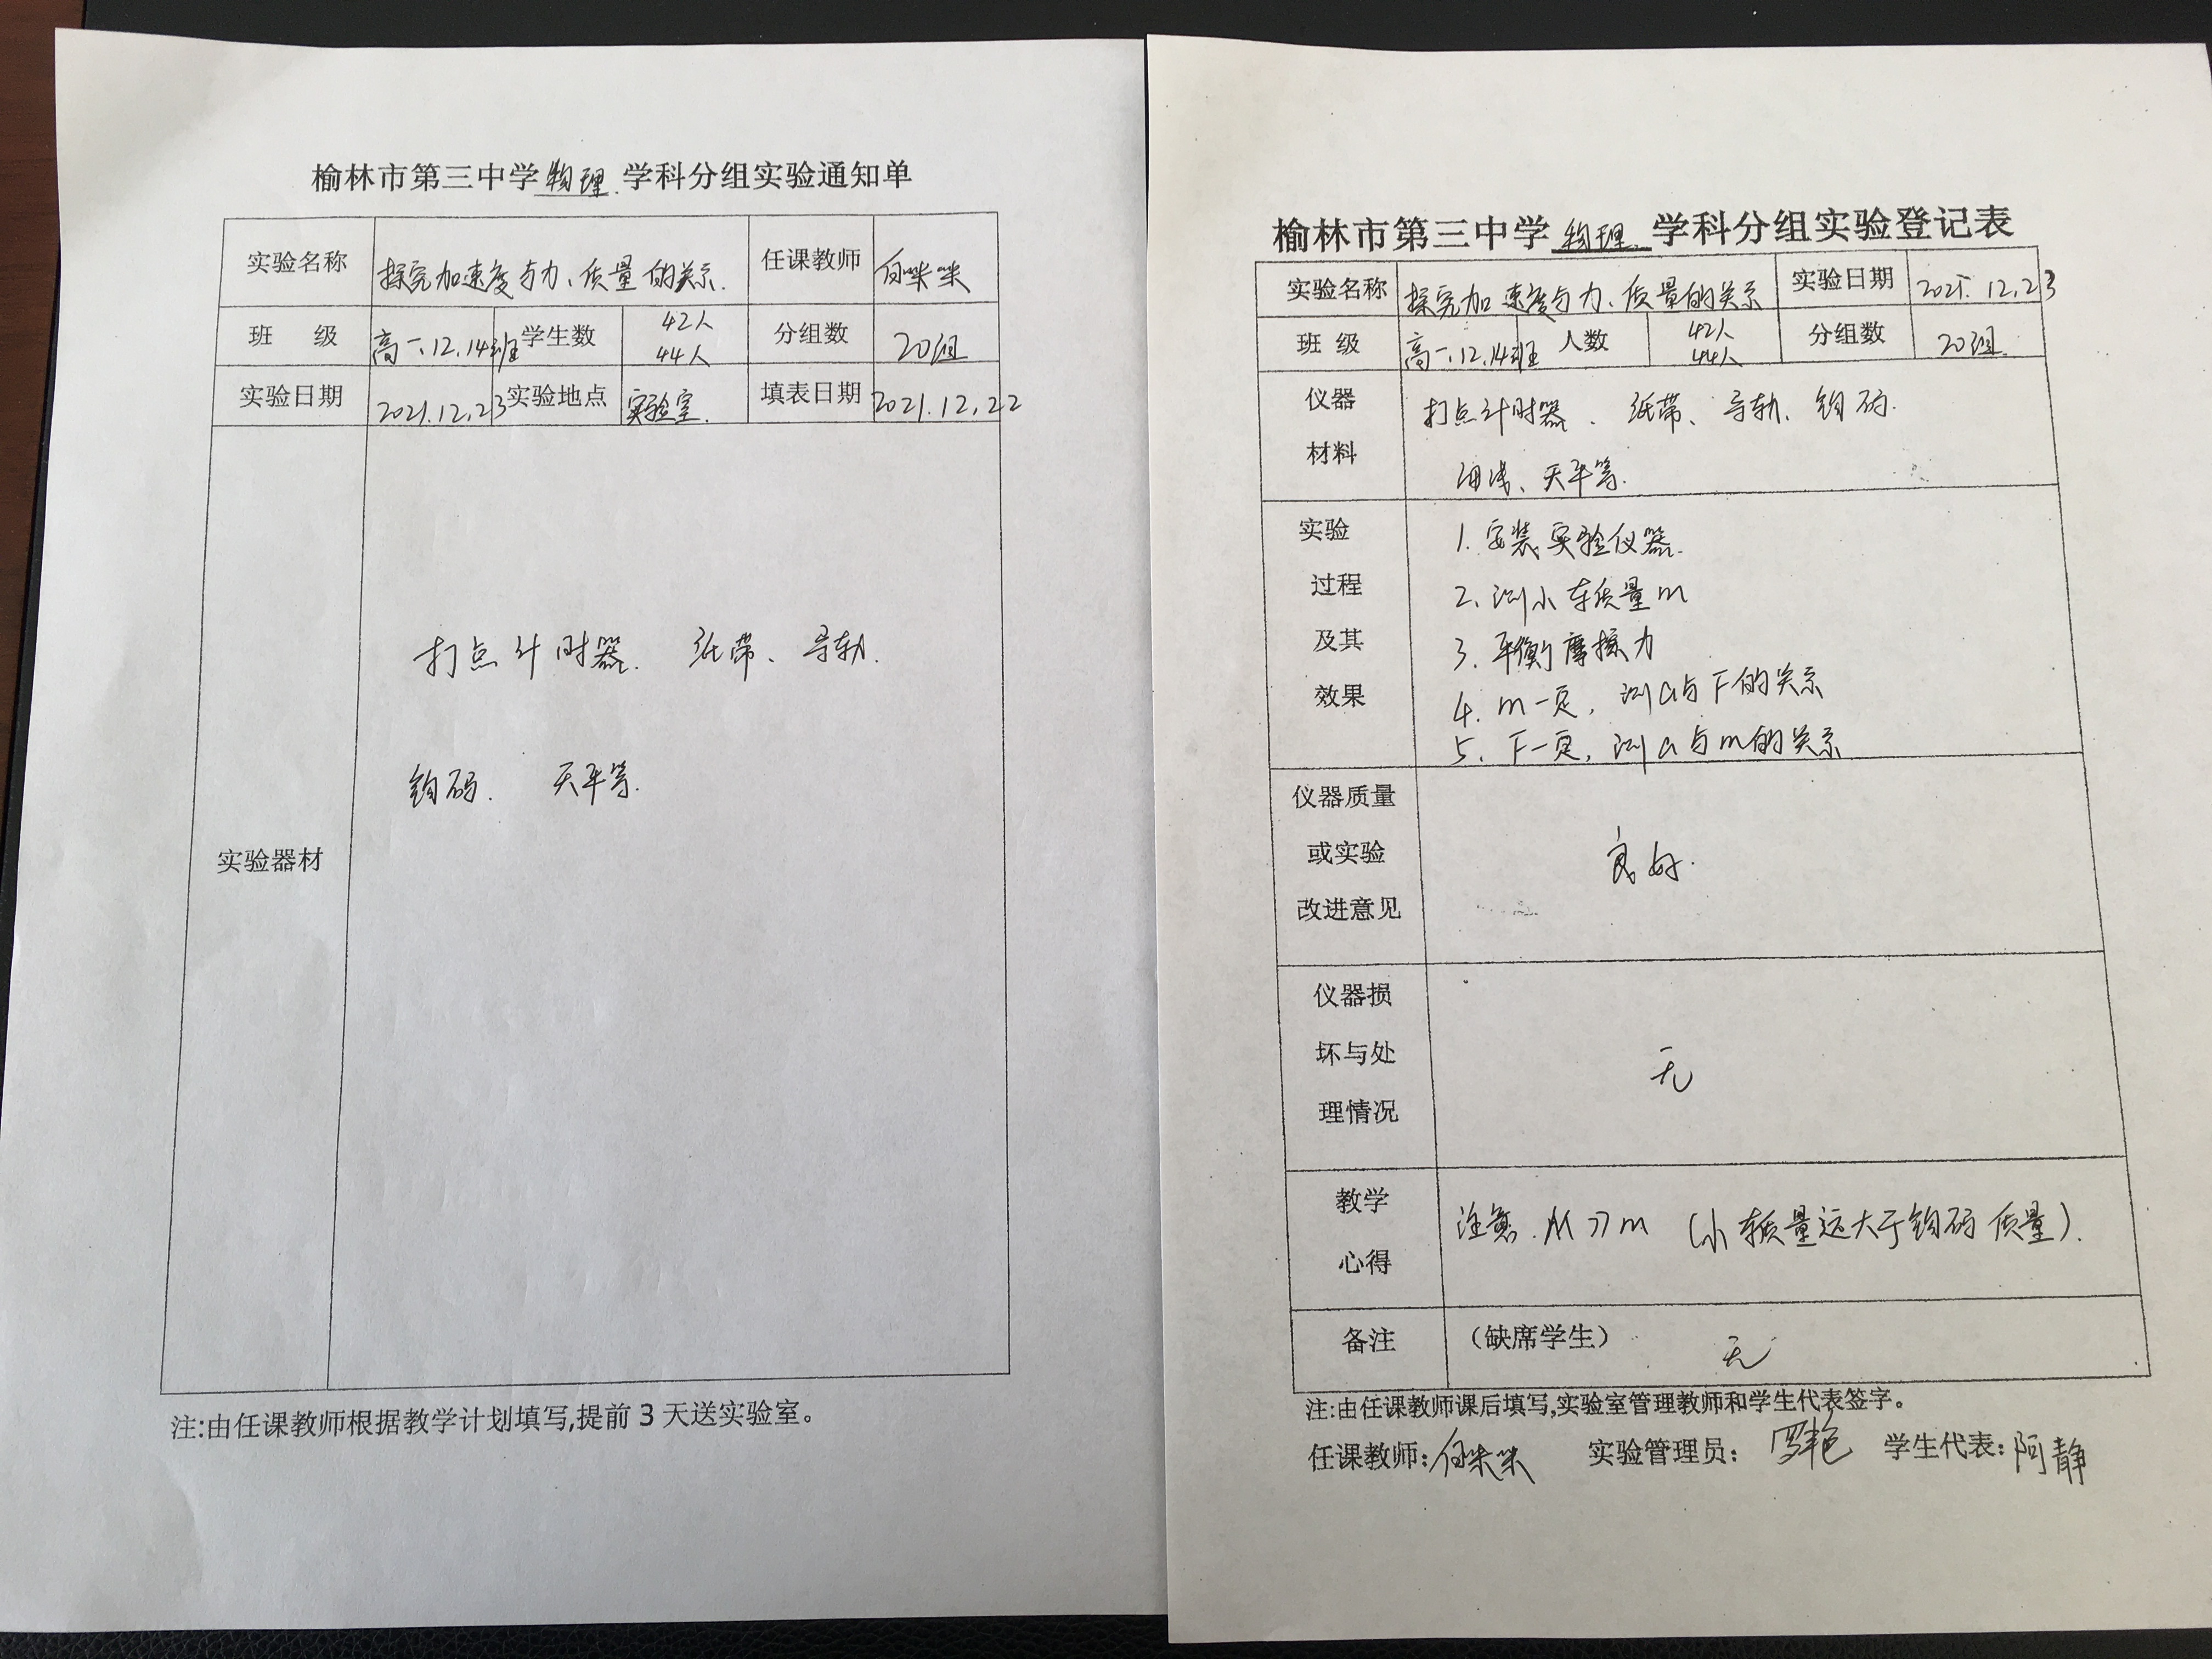 榆林市第三中学物理学科分组实验通知单
实验名称 探究加速度与力、质量的关系. 任课教师
班 级 高一.12.14班 学生数 42人 44人 分组数 20组
实验日期 2021.12.23 实验地点 实验室. 填表日期 2021.12.22
实验器材
打点计时器. 纸带、导轨.
钩码. 天平等.
注:由任课教师根据教学计划填写,提前3天送实验室。
榆林市第三中学物理.学科分组实验登记表
实验名称 探究加速度与力、质量的关系 实验日期 2021.12.23
班 级 高一.12.14班 人数 42人 44人 分组数 20组.
仪器
材料
打点计时器、纸带、导轨、钩码.
细线、天平等.
实验
过程
及其
效果
1. 安装实验仪器.
2、测小车质量m
3. 平衡摩擦力
4. m一定,测a与F的关系
5. F一定,测a与m的关系
仪器质量
或实验
改进意见
良好.
仪器损
坏与处
理情况
无
教学
心得
注意. M>>m (小车质量远大于钩码质量).
备注 (缺席学生) 无
注:由任课教师课后填写,实验室管理教师和学生代表签字。
任课教师: 实验管理员: 罗艳 学生代表:阿静